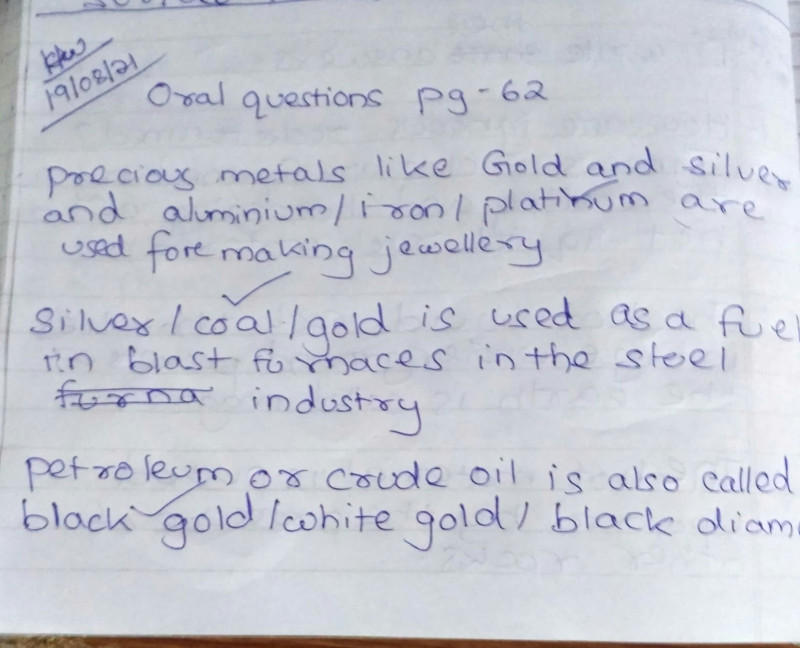 19/08/21
Oral questions pg-62
precious metals like Gold and silver
and aluminium/iron/platinum are
used fore making jewellery
Silver/coal/gold is used as a fuel
in blast furnaces in the steel
furna industry
petroleum or crude oil is also called
black gold/white gold/ black diam